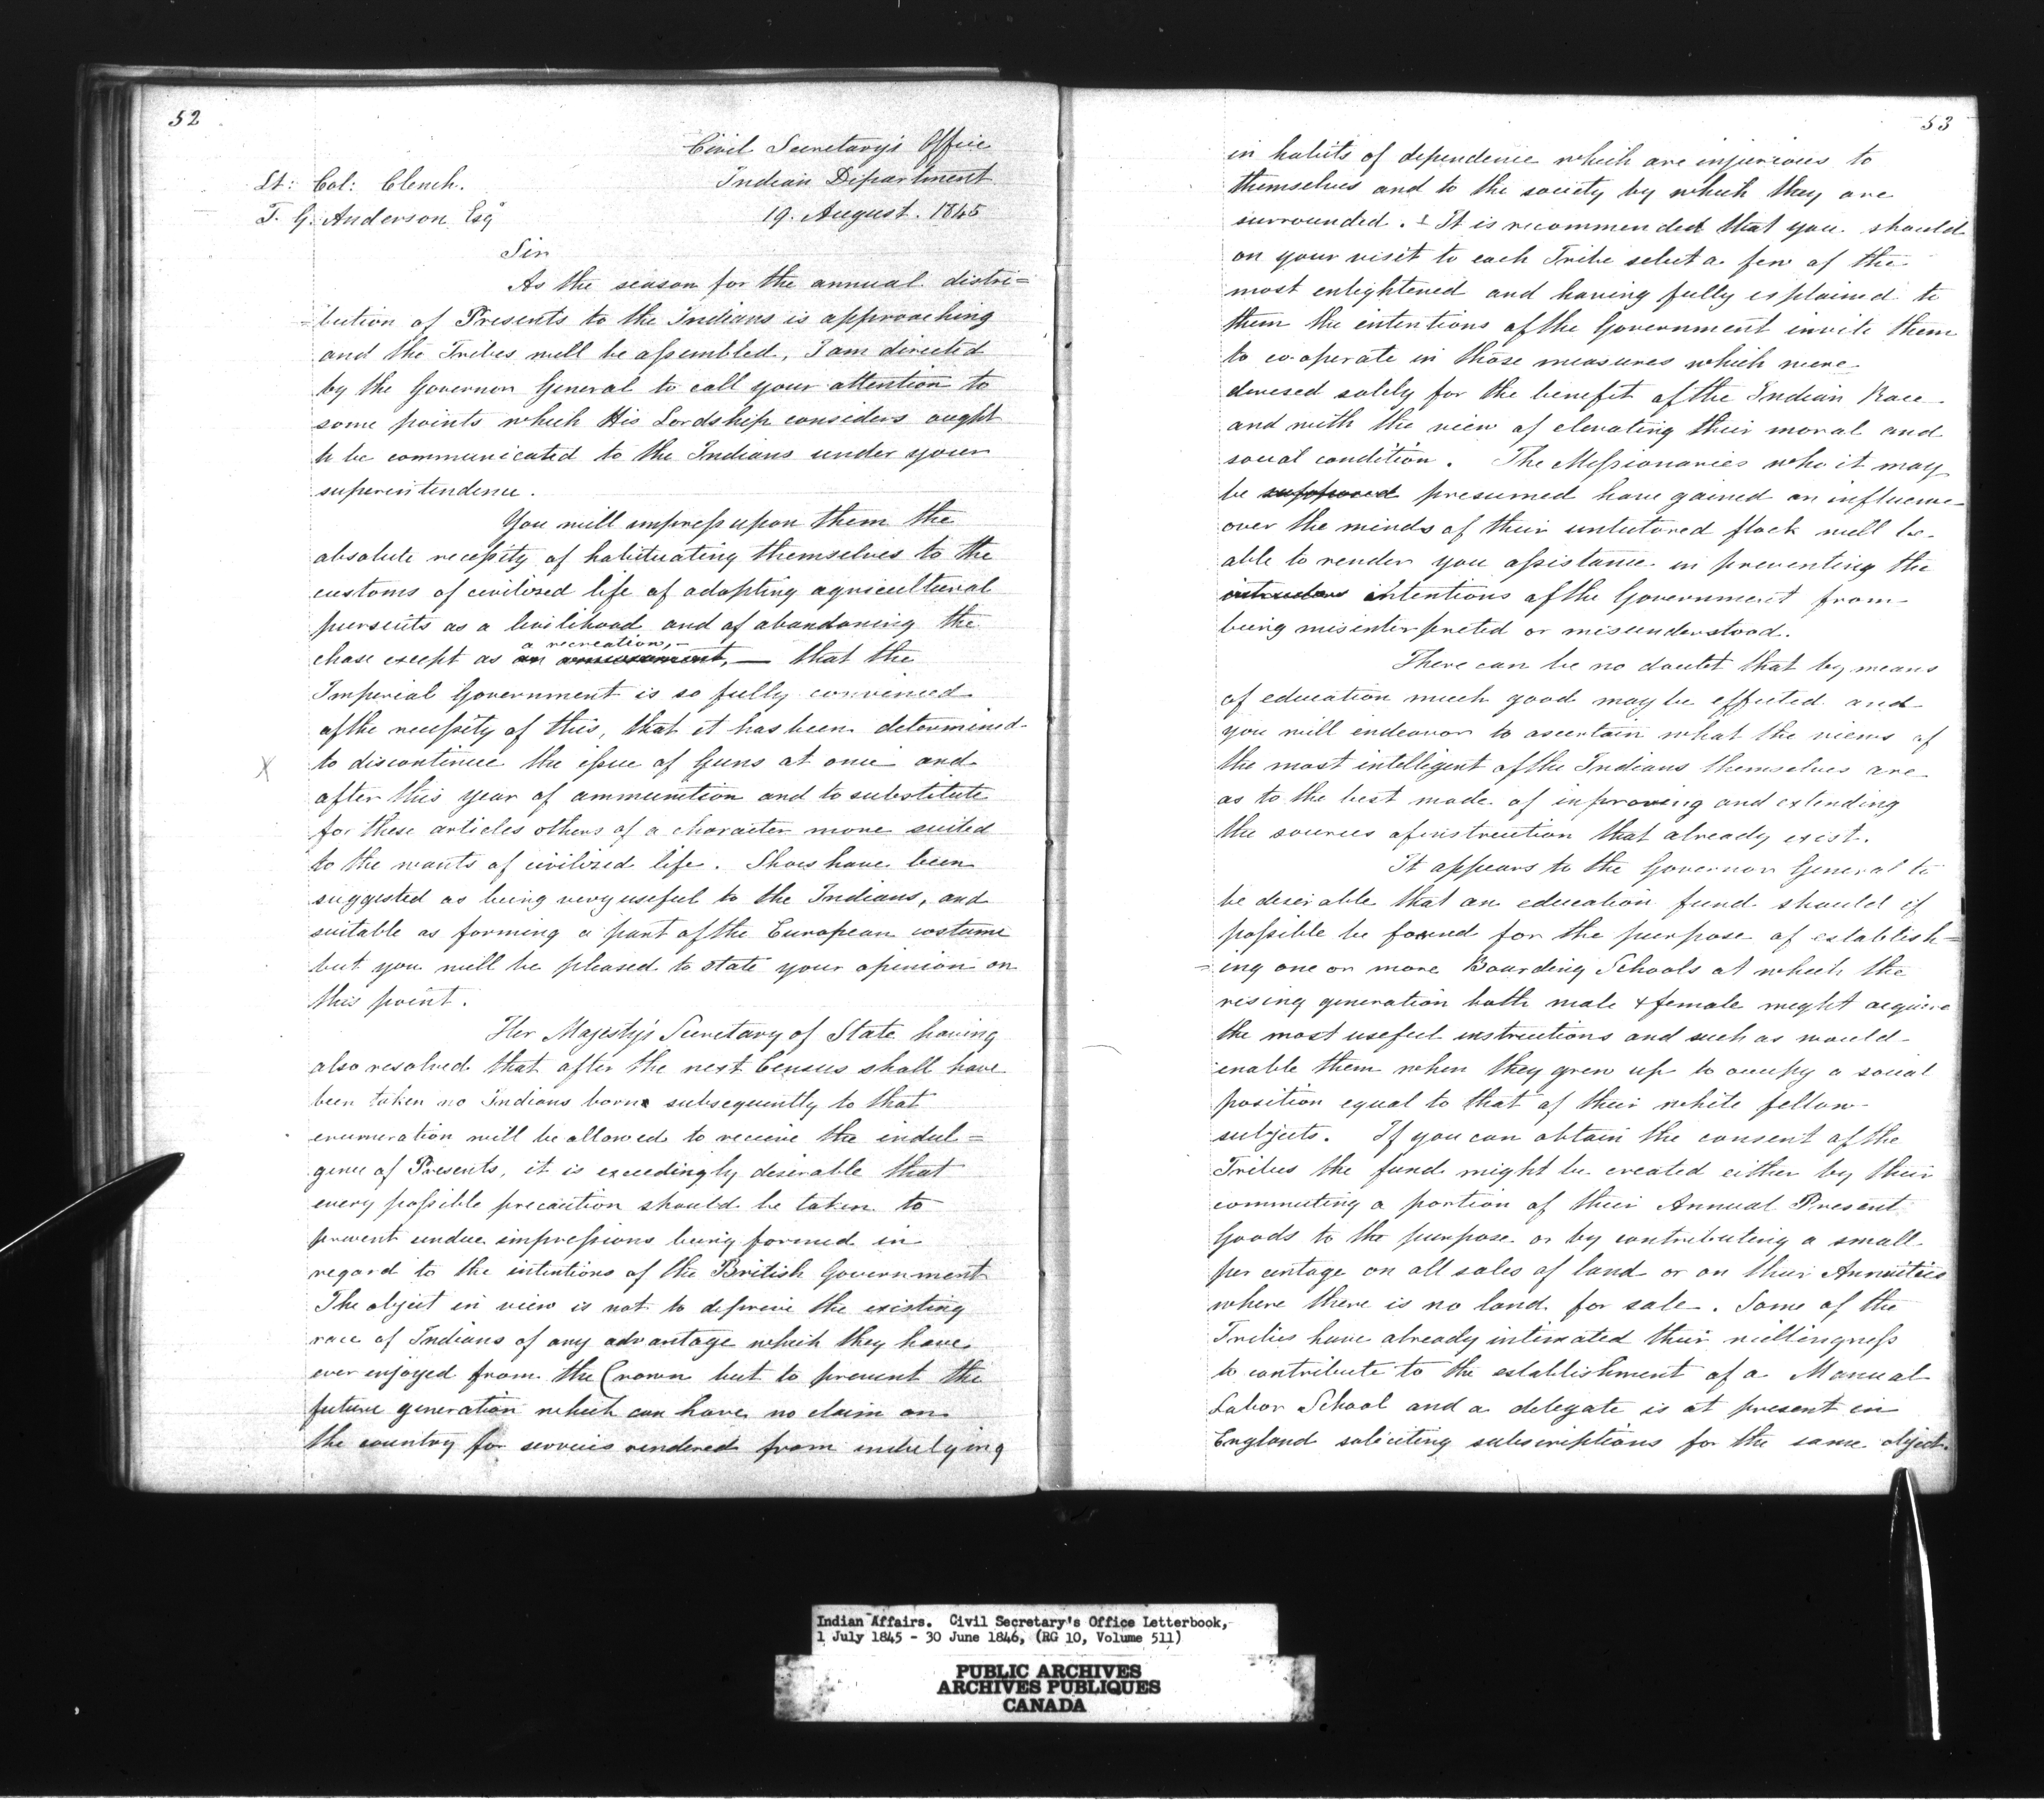 52
Civil Secretary's Office
Indian Department
19. August. 1845
Lt: Col: Clench.
T. G. Anderson Esqr
Sir
As the season for the annual distri=
=bution of Presents to the Indians is approaching
and the Tribes will be assembled, I am directed
by the Governor General to call your attention to
some points which His Lordship considers ought
to be communicated to the Indians under your
superintendence.
You will impress upon them the
absolute necessity of habituating themselves to the
customs of civilized life of adopting agricultural
pursuits as a livilihood and of abandoning the
a recreation,-
chase except as an amusement, — that the
Imperial Government is so fully convinced
of the necessity of this, that it has been determined
X to discontinue the issue of Guns at once and
after this year of ammunition and to substitute
for these articles others of a character more suited
to the wants of civilized life. Shoes have been
suggested as being very useful to the Indians, and
suitable as forming a part of the European costume
but you will be pleased to state your opinion on
this point.
Her Majesty's Secretary of State having
also resolved that after the next Census shall have
been taken no Indians born subsequently to that
enumeration will be allowed to receive the indul=
gence of Presents, it is exceedingly desirable that
every possible precaution should be taken to
prevent undue impressions being formed in
regard to the intentions of the British Government
The object in view is not to deprive the existing
race of Indians of any advantage which they have
ever enjoyed from the Crown but to prevent the
future generation which can have no claim on
the country for services rendered from indulging
53
in habits of dependence which are injurious to
themselves and to the society by which they are
surrounded. It is recommended that you should
on your visit to each Tribe select a few of the
most enlightened and having fully explained to
them the intentions of the Government invite them
to co-operate in those measures which were
devised solely for the benefit of the Indian Race
and with the view of elevating their moral and
social condition. The Missionaries who it may
be supposed presumed have gained an influence
over the minds of their untutored flock will be
able to render you assistance in preventing the
intentions of the Government from
being misinterpreted or misunderstood.
There can be no doubt that by means
of education much good may be effected and
you will endeavor to ascertain what the views of
the most intelligent of the Indians themselves are
as to the best mode of improving and extending
the sources of instruction that already exist.
It appears to the Governor General to
be desirable that an education fund should if
possible be formed for the purpose of establish=
=ing one or more Boarding Schools at which the
rising generation both male & female might acquire
the most useful instructions and such as would
enable them when they grew up to occupy a social
position equal to that of their white fellow
subjects. If you can obtain the consent of the
Tribes the fund might be created either by their
commuting a portion of their Annual Present
Goods to the purpose or by contributing a small
per centage on all sales of land or on their Annuities
where there is no land for sale. Some of the
Tribes have already intimated their willingness
to contribute to the establishment of a Manual
Labor School and a delegate is at present in
England soliciting subscriptions for the same object.
Indian Affairs. Civil Secretary's Office Letterbook,
1 July 1845 - 30 June 1846, (RG 10, Volume 511)
PUBLIC ARCHIVES
ARCHIVES PUBLIQUES
CANADA